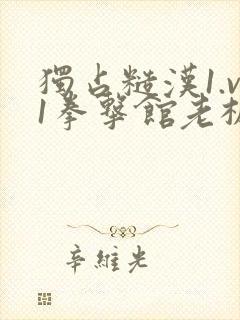 獨占糙漢1.v
1拳擊館老板
辛維光